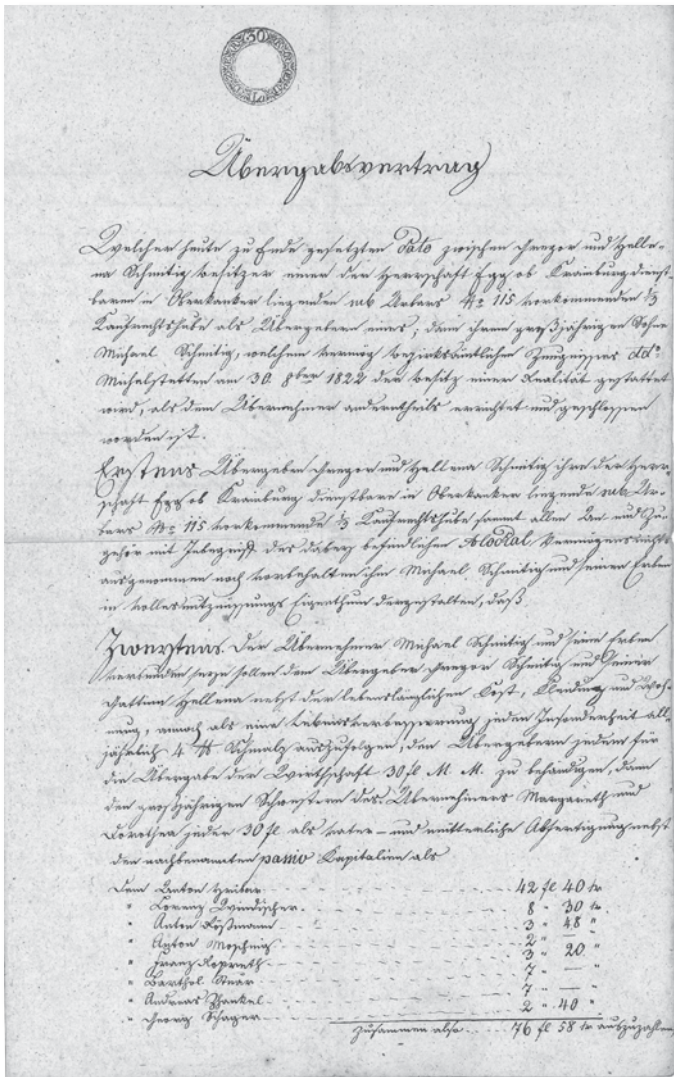 30
Übergabsvertrag
Welcher heute zu Ende gesetzten Dato zwischen Gregor und Helle-
na Schnitig Besitzer einer der Herrschaft Egg ob Krainburg dienst-
baren in Oberkanker liegenden sub Urbars No 115 vorkommenden 1/3
Kaufrechtshube als Übergebern eines; dann ihrem großjährigen Sohne
Michael Schnitig, welchem vermög bezirksämtlichen Zeugnisses ddo
Michelstetten am 30. 8ber 1822 der Besitz einer Realität gestattet
wird, als dem Übernehmer anderntheils errichtet und geschlossen
worden ist.
Erstens Übergeben Gregor und Hellena Schnitig ihre der Herr-
schaft Egg ob Krainburg dienstbare in Oberkanker liegende sub Ur-
bars No 115 vorkommende 1/3 Kaufrechtshube sammt allen An- und Zu-
gehör mit Inbegriff des dabey befindlichen Vermögens nichts
ausgenommen noch vorbehalten ihm Michael Schnitig und seinen Erben
in volles Eigenthum dergestalten, daß
Zweytens. Der Übernehmer Michael Schnitig und seine Erben
verbunden seyn sollen dem Übergeber Gregor Schnitig und seiner
Gattinn Hellena nebst der lebenslänglichen Kost, Kleidung und Woh-
nung, annoch als eine Lebensverbesserung jedem Insonderheit all-
jährlich 4 ℔ Schmalz auszufolgen, den Übergebern jedem für
die Übergabe der Wirthschaft 30 fl M. M. zu behändigen, dann
den großjährigen Schwestern des Übernehmers Margareth und
Dorothea jeder 30 fl als väter- und mütterliche Abfertigung nebst
den nachbenannten passiv Kapitalien als
Dem Anton Hribar 42 fl 40 kr
" Lorenz Windischer 8 " 30 kr.
" Anton Roßmann 3 " 48 "
" Anton Moschnig 2 " — "
" Franz 3 " 20 "
" Barthol 7 " — "
" Andreas 7 " — "
" Georg Schager 2 " 40 "
Zusammen also 76 fl 58 kr auszuzahlen,